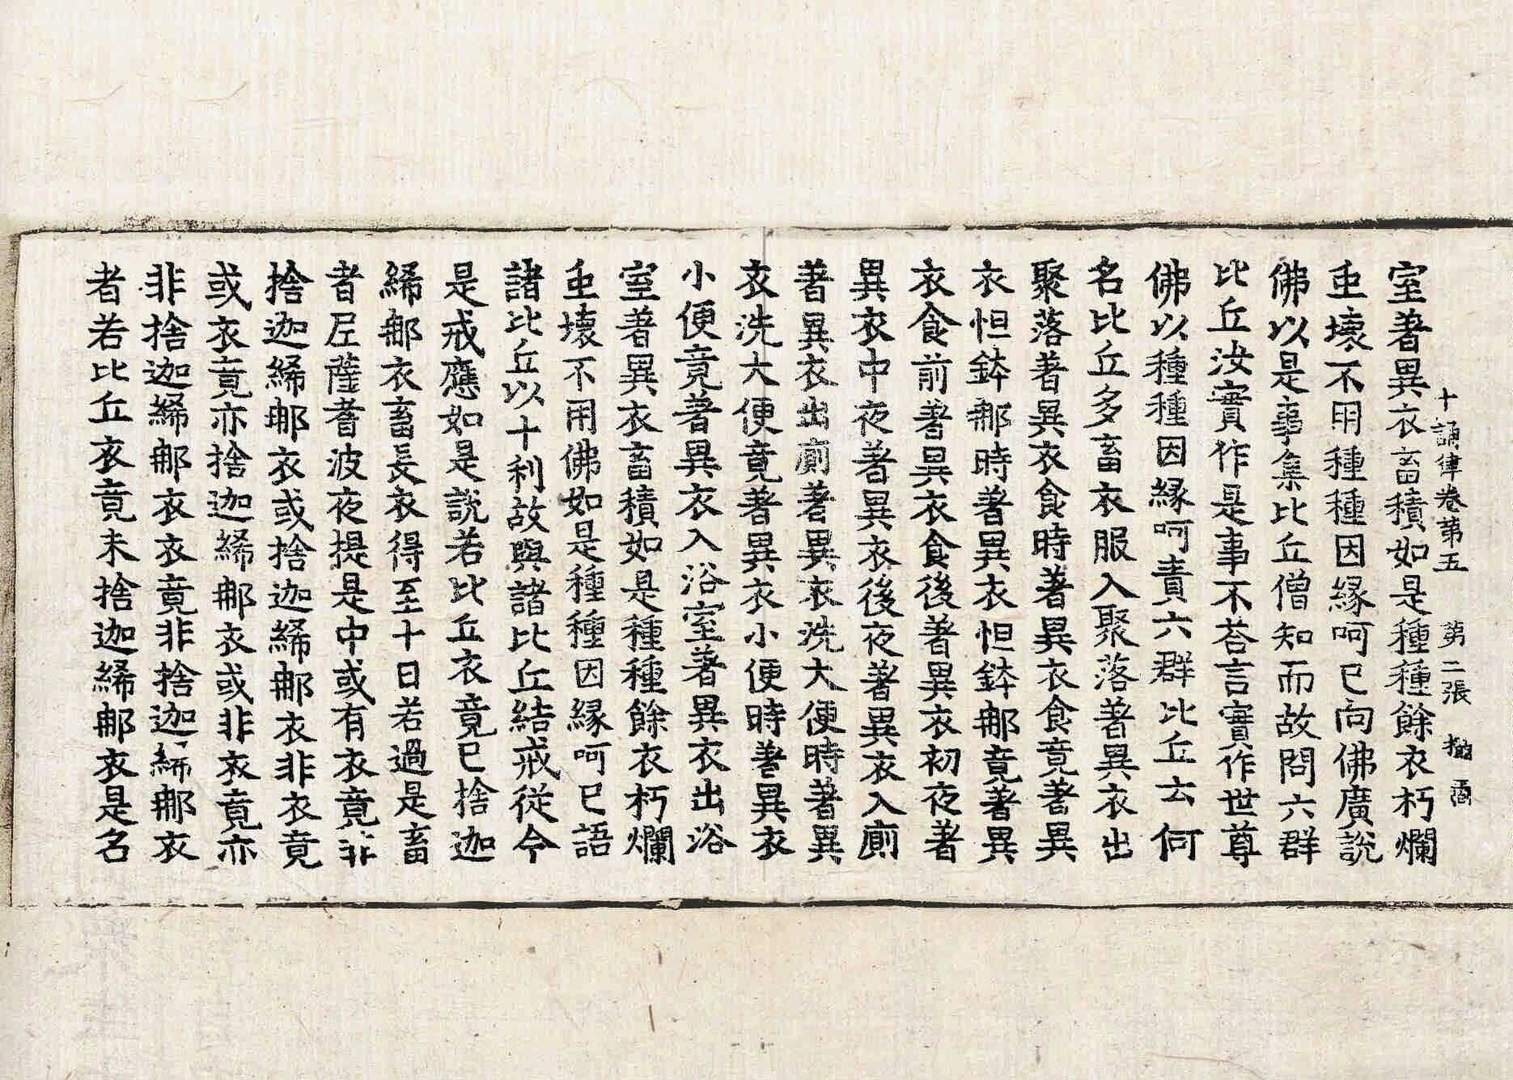 十誦律卷第五 第二張 攝
室著異衣畜積如是種種餘衣朽爛
虫壞不用種種因緣呵已向佛廣說
佛以是事集比丘僧知而故問六群
比丘汝實作是事不荅言實作世尊
佛以種種因緣呵責六群比丘云何
名比丘多畜衣服入聚落著異衣出
聚落著異衣食時著異衣食竟著異
衣怛鉢那時著異衣怛鉢那竟著異
衣食前著異衣食後著異衣初夜著
異衣中夜著異衣後夜著異衣入廁
著異衣出廁著異衣洗大便時著異
衣洗大便竟著異衣小便時著異衣
小便竟著異衣入浴室著異衣出浴
室著異衣畜積如是種種餘衣朽爛
虫壞不用佛如是種種因緣呵已語
諸比丘以十利故與諸比丘結戒從今
是戒應如是說若比丘衣竟已捨迦
絺那衣畜長衣得至十日若過是畜
者尼薩耆波夜提是中或有衣竟非
捨迦絺那衣或捨迦絺那衣非衣竟
或衣竟亦捨迦絺那衣或非衣竟亦
非捨迦絺那衣衣竟非捨迦絺那衣
者若比丘衣竟未捨迦絺那衣是名